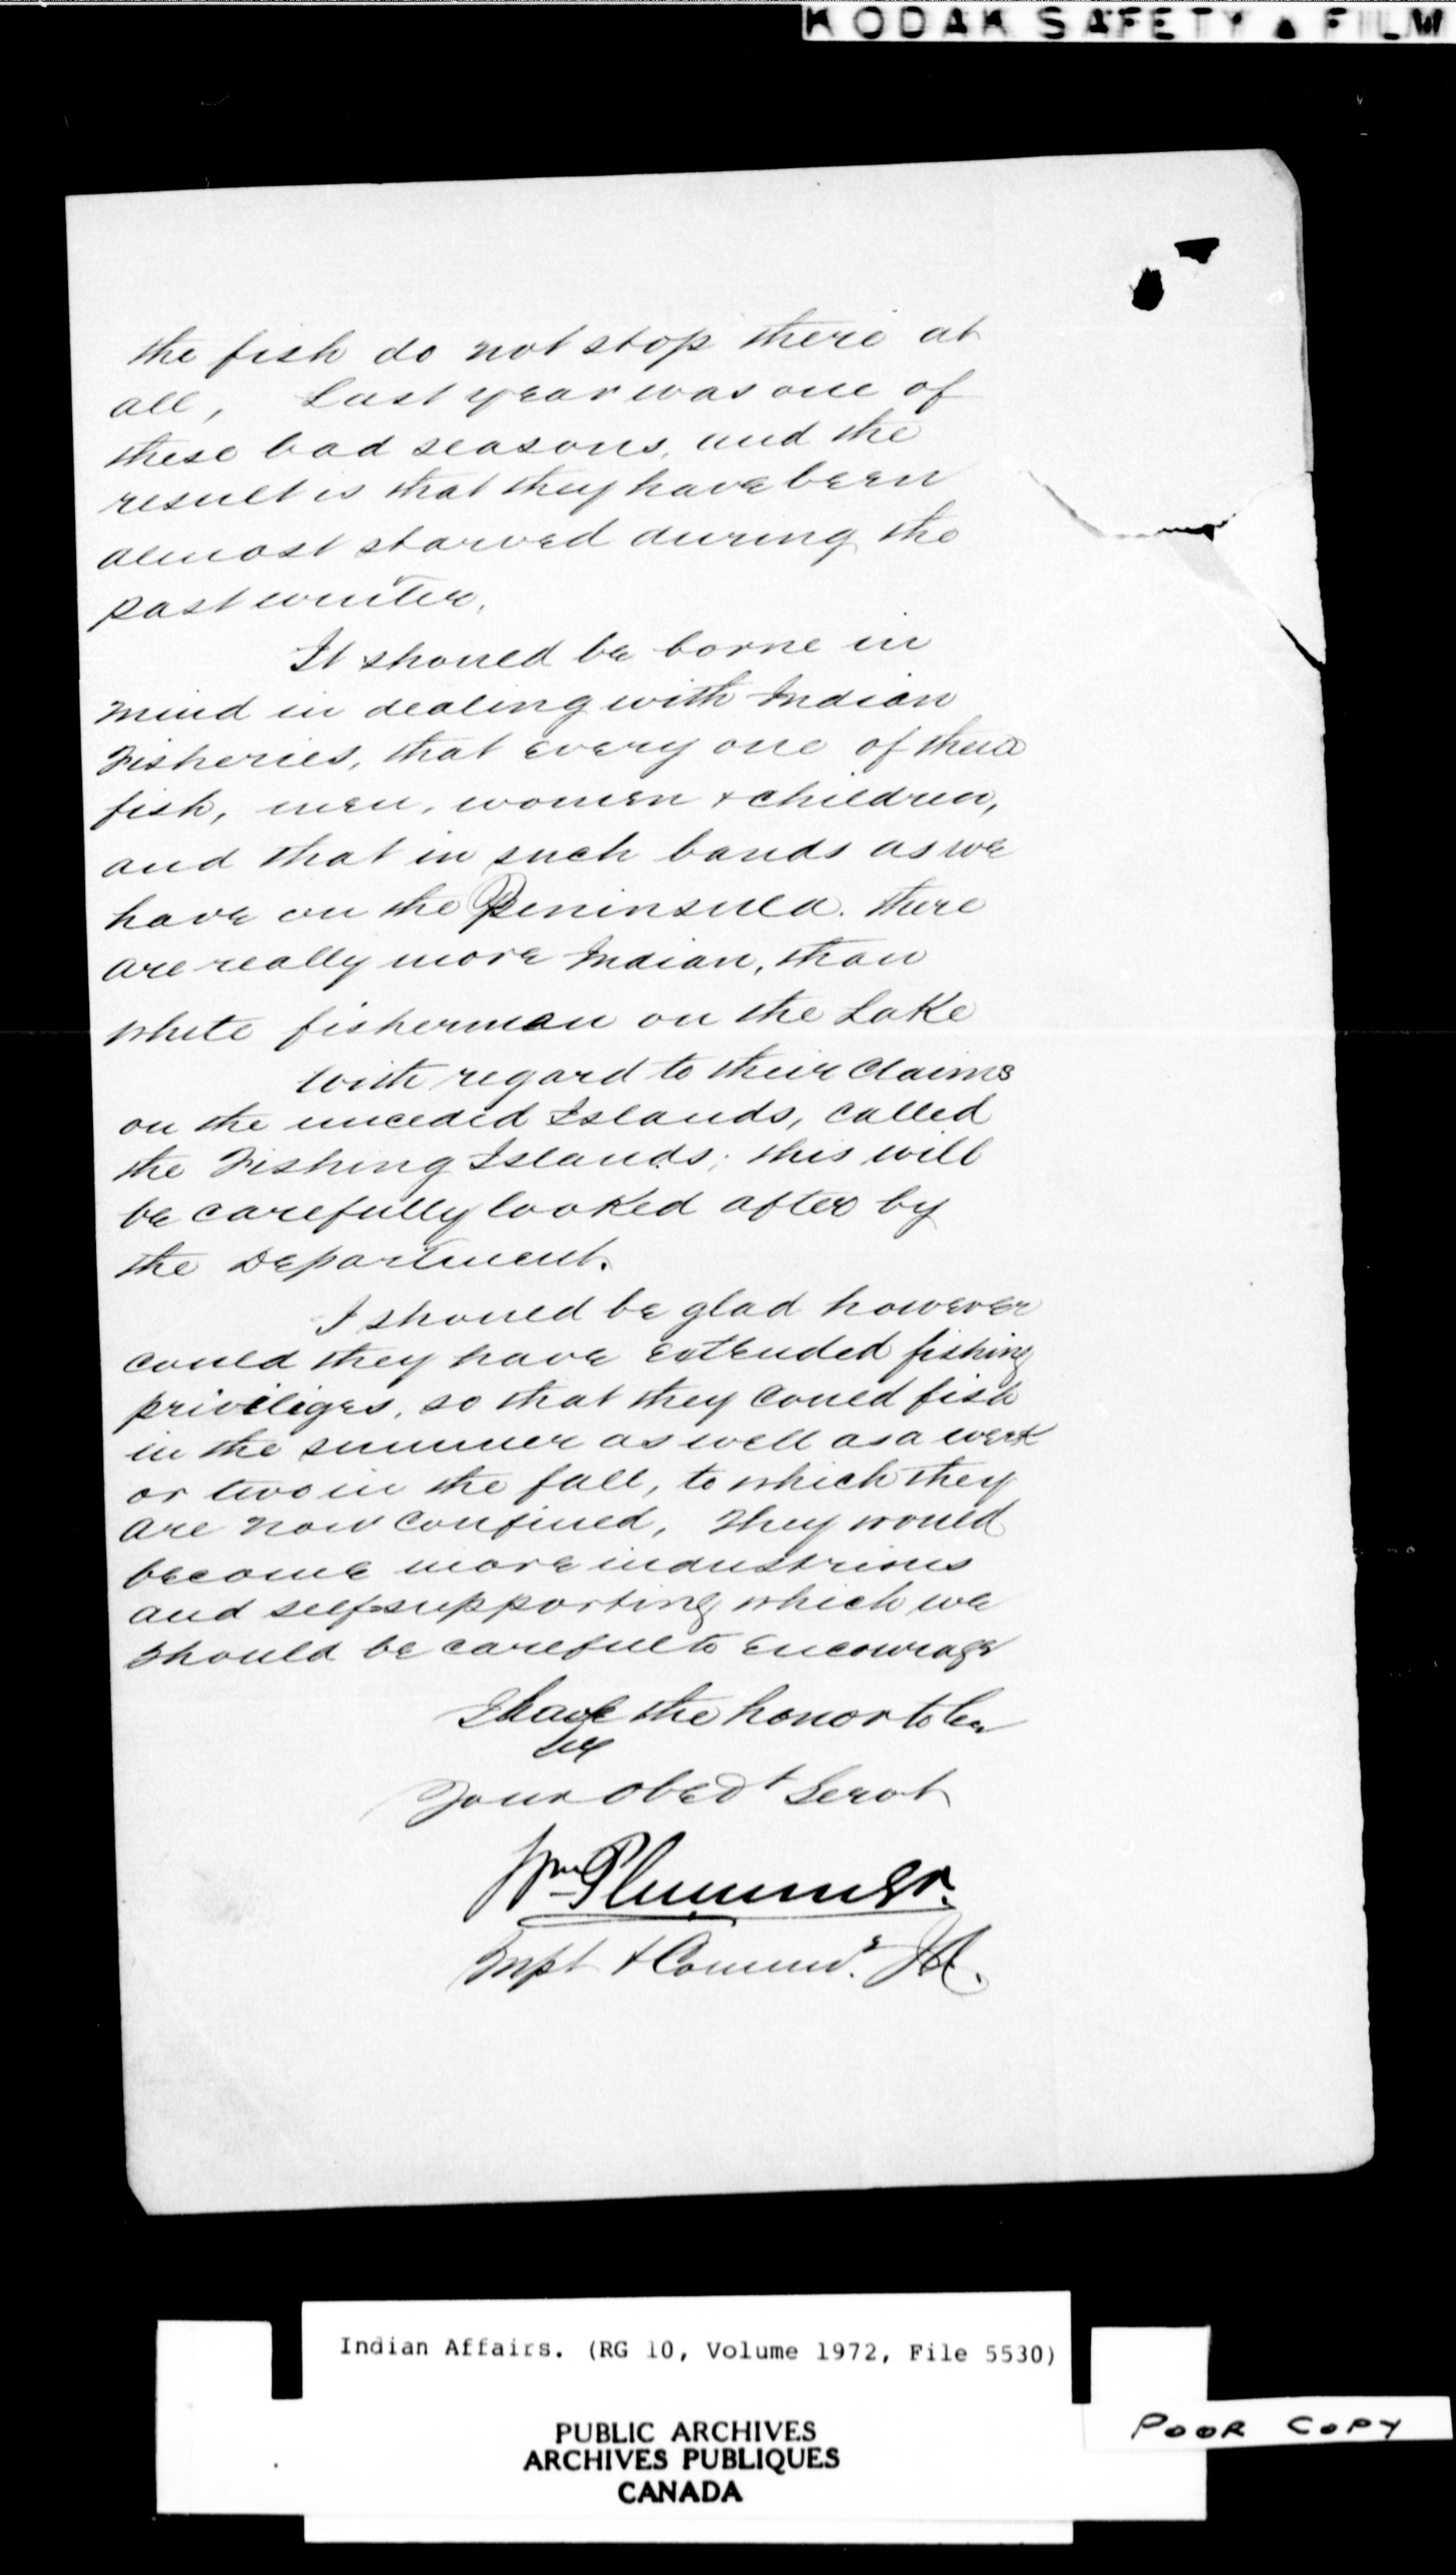 KODAK SAFETY ▲ FILM
the fish do not stop there at
all, Last year was one of
these bad seasons, and the
result is that they have been
almost starved during the
past winter.
It should be borne in
mind in dealing with Indian
Fisheries, that every one of them
fish, men, women & children,
and that in such bands as we
have on the Peninsula. there
are really more Indian, than
white fisherman on the Lake
With regard to their claims
on the unceded Islands, called
the Fishing Islands; this will
be carefully looked after by
the Department.
I should be glad however
could they have extended fishing
priviliges, so that they could fish
in the summer as well as a week
or two in the fall, to which they
are now confined, They would
become more industrious
and self-supporting which we
should be careful to encourage
I have the honor to be
Sir
Your Obedt Servt
Wm Plummer.
Supt & Commr. I.A.
Indian Affairs. (RG 10, Volume 1972, File 5530)
PUBLIC ARCHIVES
ARCHIVES PUBLIQUES
CANADA
POOR COPY